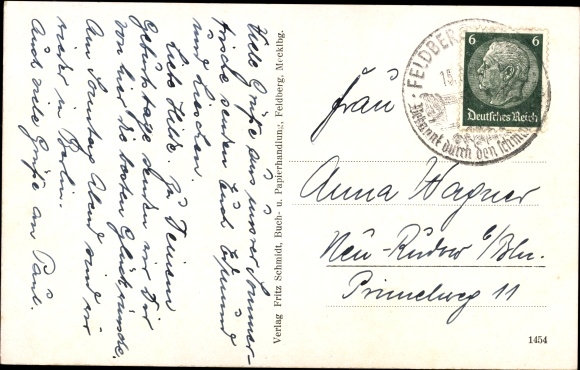 Viele Grüße aus unsrer Sommer-
frische senden Euch Edmund
und Lieschen.
Liebe Hilde. Zu Deinem
Geburtstage senden wir Dir
von hier die besten Glückwünsche.
Am Sonntag Abend sind wir
wieder in Berlin.
Auch viele Grüße an Paul.
Verlag Fritz Schmidt, Buch- u. Papierhandlung, Feldberg, Mecklbg.
FELDBERG
Bekannt durch den schönen
6 6
Deutsches Reich
Frau
Anna Wagner
Neu-Rudow b/Bln.
Primelweg 11
1454